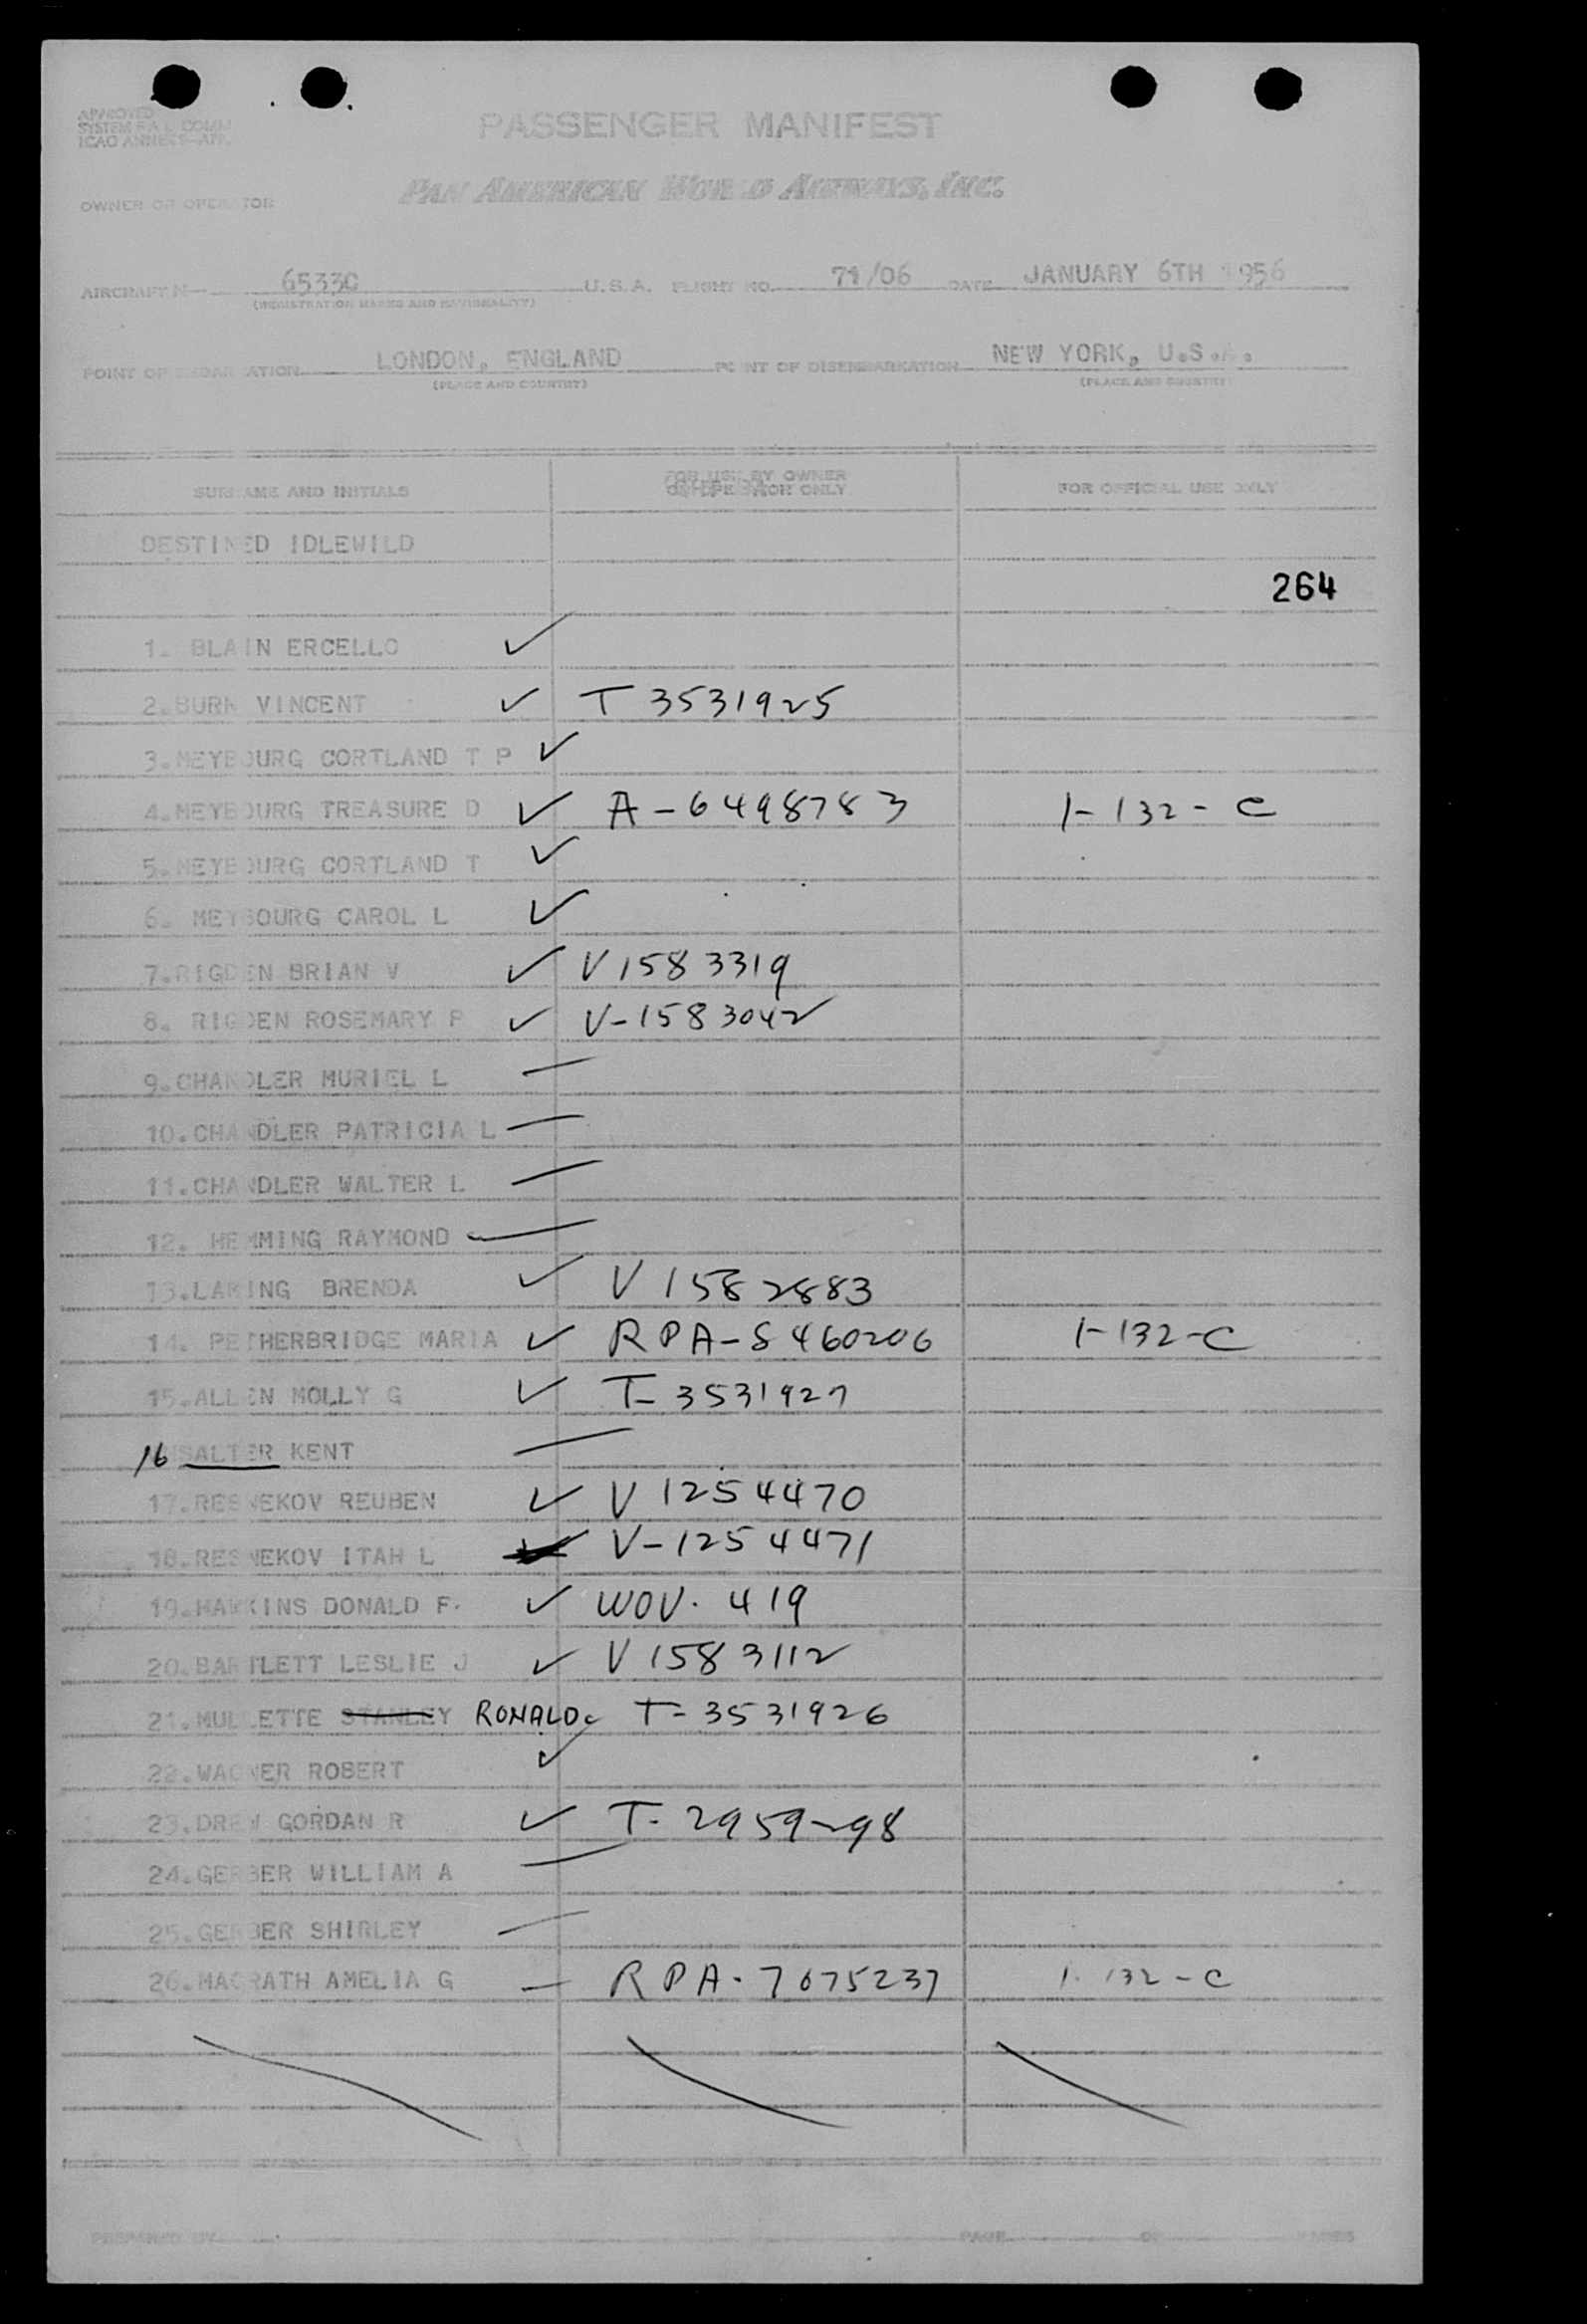 APPROVED
SYSTEM COMM
ICAO ANNEX
PASSENGER MANIFEST
PAN AMERICAN WORLD AIRWAYS, INC.
OWNER OR OPERATOR
AIRCRAFT N 6533C U.S.A. FLIGHT NO. 71/06 DATE JANUARY 6TH 1956
(REGISTRATION MARKS AND NATIONALITY)
POINT OF EMBARKATION LONDON, ENGLAND POINT OF DISEMBARKATION NEW YORK, U.S.A.
(PLACE AND COUNTRY) (PLACE AND COUNTRY)
SURNAME AND INITIALS FOR USE BY OWNER OR OPERATOR ONLY FOR OFFICIAL USE ONLY
DESTINED IDLEWILD
264
1. BLAIN ERCELLO ✓
2.BURN VINCENT ✓ T 3531925
3.MEYBOURG CORTLAND T P ✓
4.MEYBOURG TREASURE D ✓ A-6498783 1-132-C
5.MEYBOURG CORTLAND T ✓
6. MEYBOURG CAROL L ✓
7.RIGDEN BRIAN V ✓ V1583319
8. RIGDEN ROSEMARY P ✓ V-1583042
9.CHANDLER MURIEL L —
10.CHANDLER PATRICIA L —
11.CHANDLER WALTER L —
12. HEMMING RAYMOND —
13.LAKING BRENDA ✓ V 1582883
14. PETHERBRIDGE MARIA ✓ RPA-8460206 1-132-C
15.ALLEN MOLLY G ✓ T-3531927
16 SALTER KENT —
17.RESNEKOV REUBEN ✓ V 1254470
18.RESNEKOV ITAH L ✓ V-1254471
19.HAWKINS DONALD F. ✓ WOV. 419
20.BARTLETT LESLIE J ✓ V 1583112
21.MULLETTE STANLEY RONALD. T-3531926
22.WAGNER ROBERT ✓
23.DREW GORDAN R ✓ T-2959298
24.GERBER WILLIAM A —
25.GERBER SHIRLEY —
26.MACRATH AMELIA G — RPA-7075237 1-132-C
PREPARED BY PAGE OF PAGES